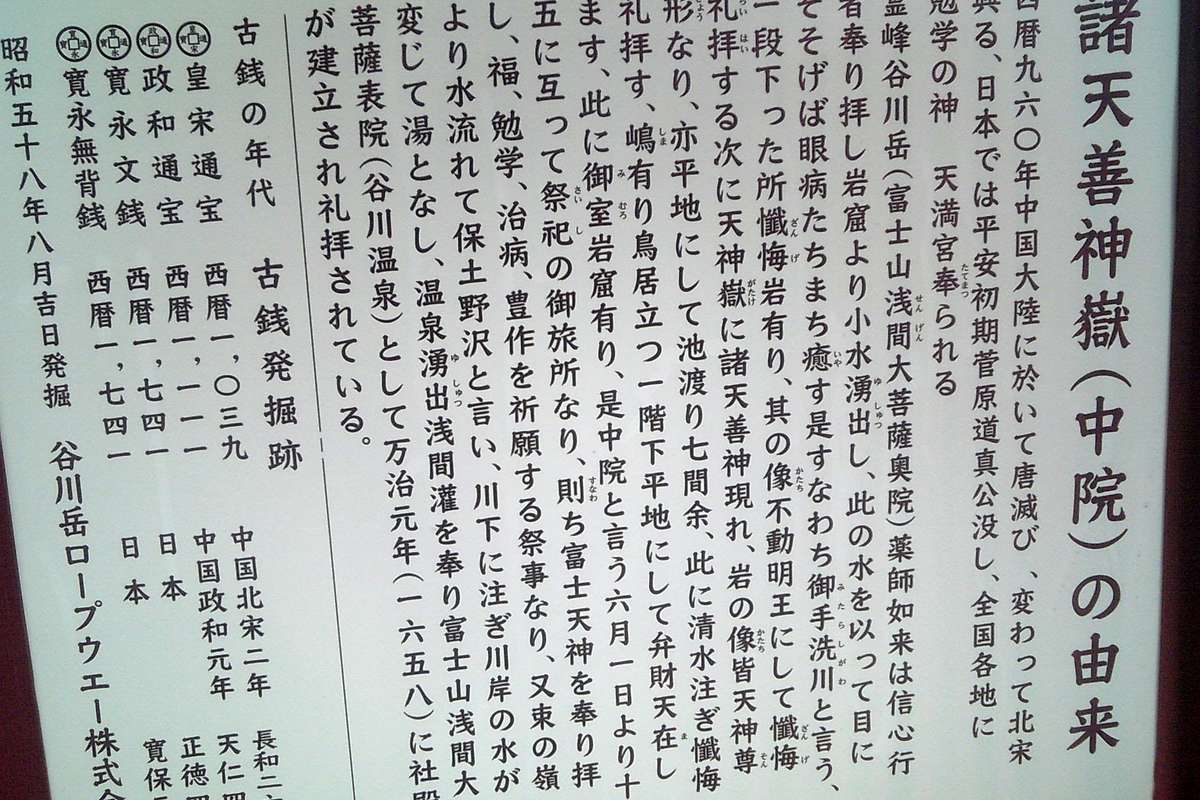 諸天善神嶽(中院)の由来
西暦九六〇年中国大陸に於いて唐滅び、変わって北宋
興る、日本では平安初期菅原道真公没し、全国各地に
勉学の神　天満宮奉られる
霊峰谷川岳(富士山浅間大菩薩奥院)薬師如来は信心行
者奉り拝し岩窟より小水湧出し、此の水を以って目に
そそげば眼病たちまち癒す是すなわち御手洗川と言う、
一段下った所懺悔岩有り、其の像不動明王にして懺悔
礼拝する次に天神嶽に諸天善神現れ、岩の像皆天神尊
形なり、亦平地にして池渡り七間余、此に清水注ぎ懺悔
礼拝す、嶋有り鳥居立つ一階下平地にして弁財天在し
ます、此に御室岩窟有り、是中院と言う六月一日より十
五に亙って祭祀の御旅所なり、則ち富士天神を奉り拝
し、福、勉学、治病、豊作を祈願する祭事なり、又東の嶺
より水流れて保土野沢と言い、川下に注ぎ川岸の水が
変じて湯となし、温泉湧出浅間灌を奉り富士山浅間大
菩薩表院(谷川温泉)として万治元年(一六五八)に社殿
が建立され礼拝されている。
古銭発掘跡
古銭の年代
皇宋通宝　西暦一,〇三九　中国北宋二年　長和二
政和通宝　西暦一,一一一　中国政和元年　天仁四
寛永文銭　西暦一,七四一　日本　正徳四
寛永無背銭　西暦一,七四一　日本　寛保元
昭和五十八年八月吉日発掘　谷川岳ロープウエー株式会